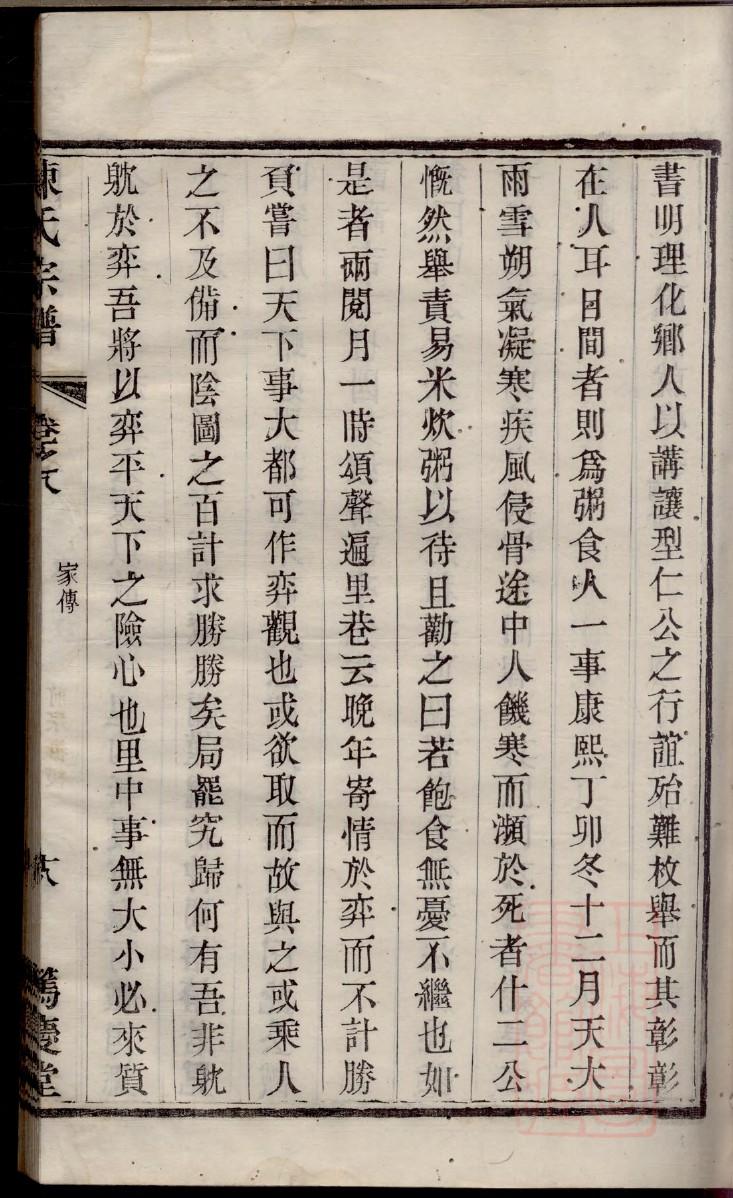 書明理化鄉人以講讓型仁公之行誼殆難枚舉而其彰彰
在人耳目間者則爲粥食人一事康熙丁卯冬十二月天大
雨雪朔氣凝寒疾風侵骨途中人饑寒而瀕於死者什二公
慨然舉責易米炊粥以待且勸之曰若飽食無憂不繼也如
是者兩閱月一時頌聲遍里巷云晚年寄情於弈而不計勝
負嘗曰天下事大都可作弈觀也或欲取而故與之或乘人
之不及備而陰圖之百計求勝勝矣局罷究歸何有吾非躭
躭於弈吾將以弈平天下之險心也里中事無大小必來質
陳氏宗譜
卷之八
家傳
十八
篤慶堂